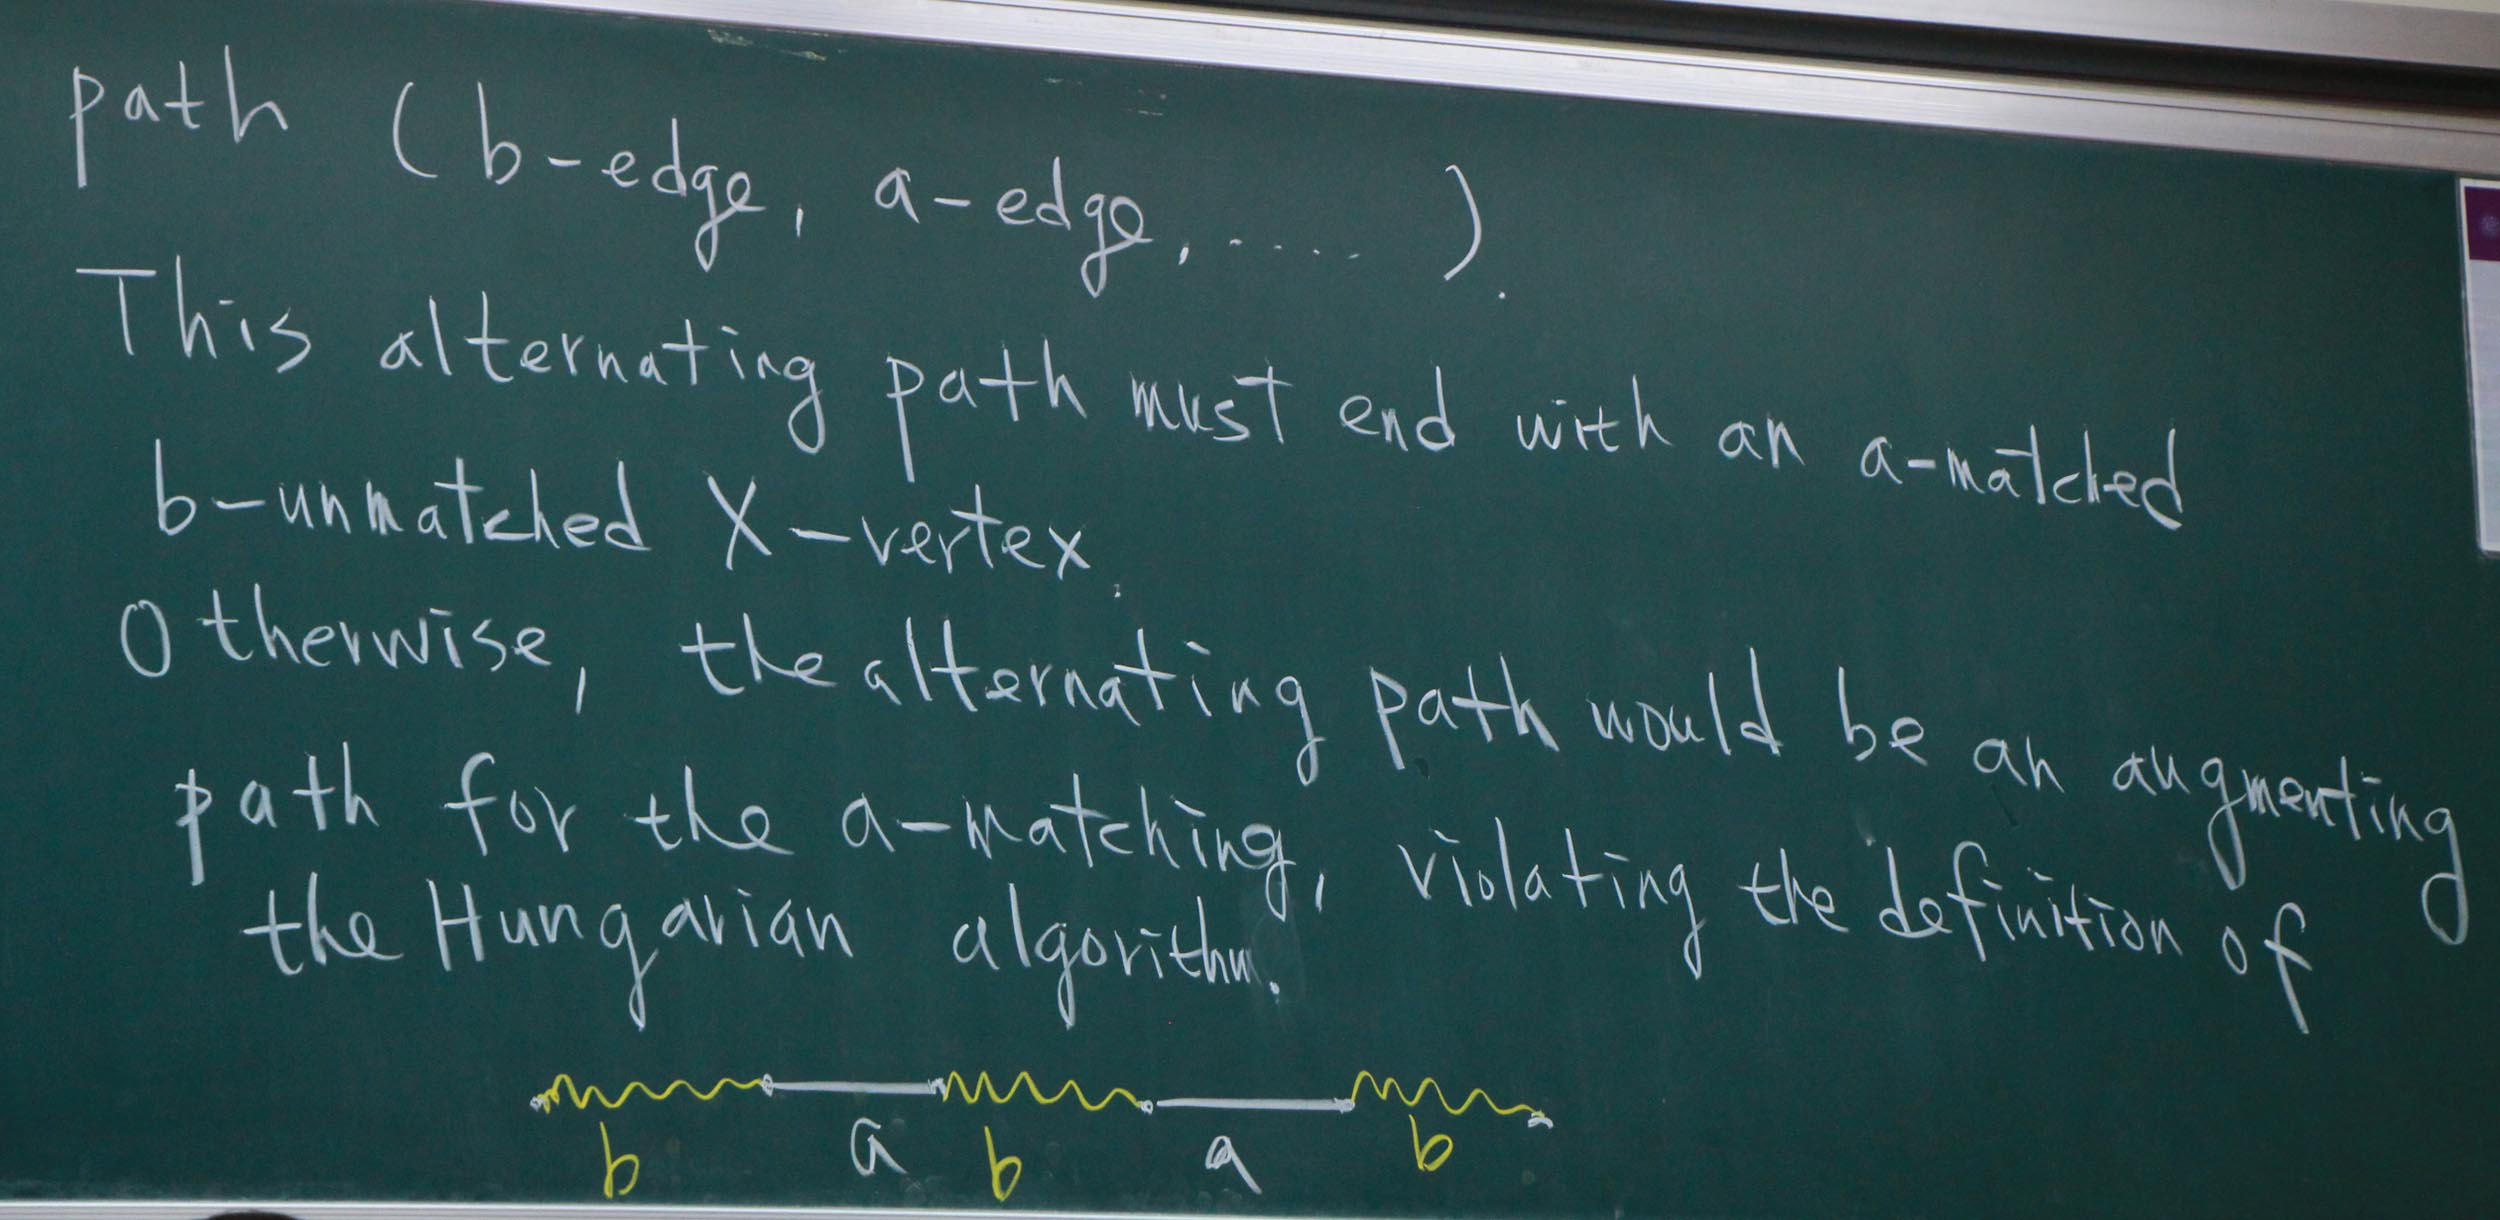 path (b-edge, a-edge, ..... ).
This alternating path must end with an a-matched
b-unmatched X-vertex.
Otherwise, the alternating path would be an augmenting
path for the a-matching, violating the definition of
the Hungarian algorithm.
b a b a b